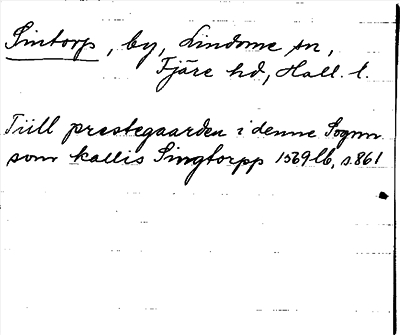 Sintorp, by, Lindome sn,
Fjäre hd, Hall. l.
Tiill prestegaarden i denne Sognn
som kallis Singtorpp 1569 lb, s. 861